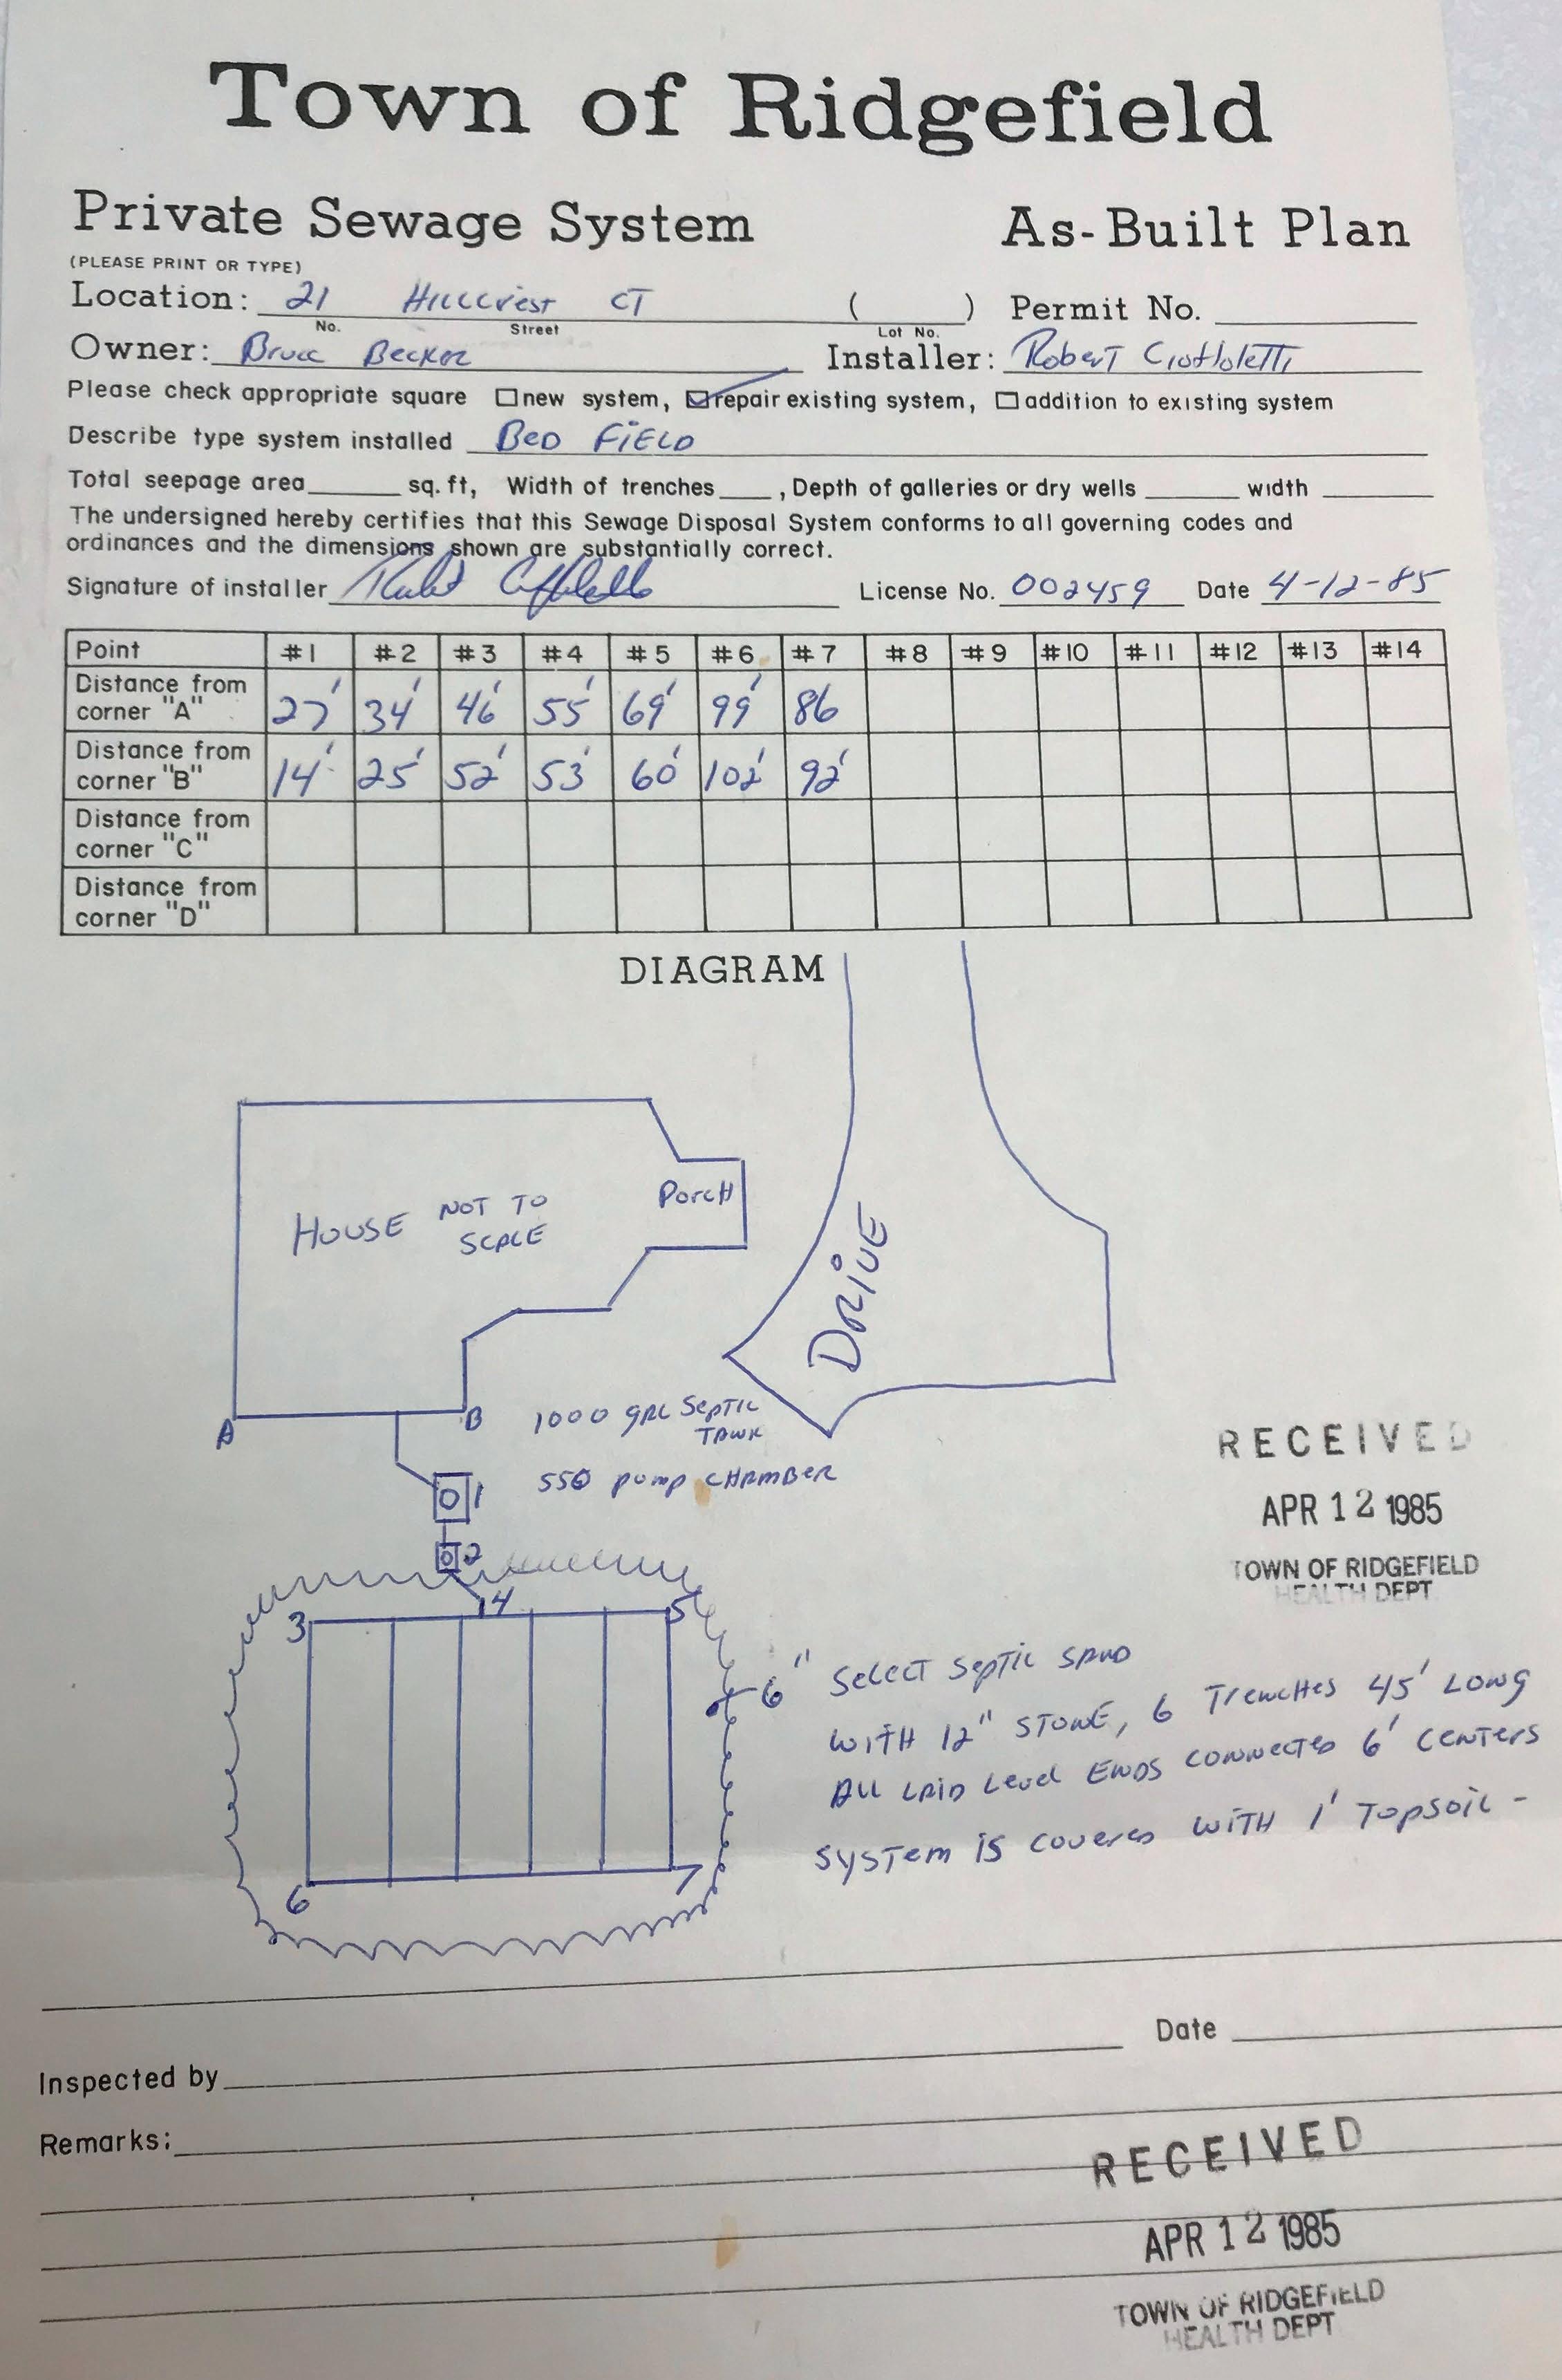 Town of Ridgefield
Private Sewage System As-Built Plan
(PLEASE PRINT OR TYPE)
Location: 21 Hillcrest CT ( ) Permit No.
No. Street Lot No.
Owner: Bruce Becker Installer: Robert
Please check appropriate square new system, repair existing system, addition to existing system
Describe type system installed BED FiELD
Total seepage area sq. ft, Width of trenches , Depth of galleries or dry wells width
The undersigned hereby certifies that this Sewage Disposal System conforms to all governing codes and
ordinances and the dimensions shown are substantially correct.
Signature of installer License No. 002459 Date 4-12-85
Point #1 #2 #3 #4 #5 #6 #7 #8 #9 #10 #11 #12 #13 #14
Distance from
corner "A" 27' 34' 46' 55' 69' 99' 86
Distance from
corner "B" 14' 25' 52' 53' 60' 102' 92'
Distance from
corner "C"
Distance from
corner "D"
DIAGRAM
HOUSE NOT TO
SCALE
PorcH
DRiVE
A B
1000 gAL SepTic
TANK
550 pump CHAMBER
1
2
3 4 5
6 7
6" Select Septic SAND
WiTH 12" STONE, 6 TrencHes 45' LONg
All LAID Level ENDS CONNECTED 6' CENTERS
SYSTem iS covered WiTH 1' Topsoil -
RECEIVED
APR 12 1985
TOWN OF RIDGEFIELD
HEALTH DEPT
Date
Inspected by
Remarks:
RECEIVED
APR 12 1985
TOWN OF RIDGEFIELD
HEALTH DEPT